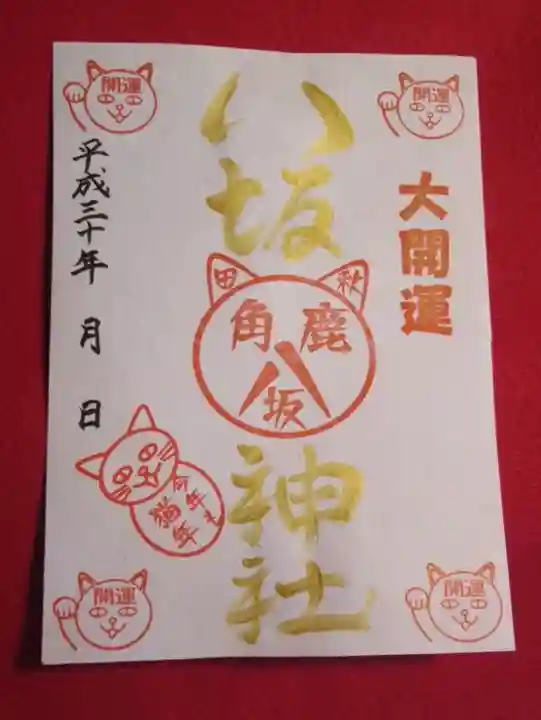 開運
開運
大開運
八坂神社
秋田
鹿角
八坂
平成三十年 月 日
今年も
猫年
開運
開運